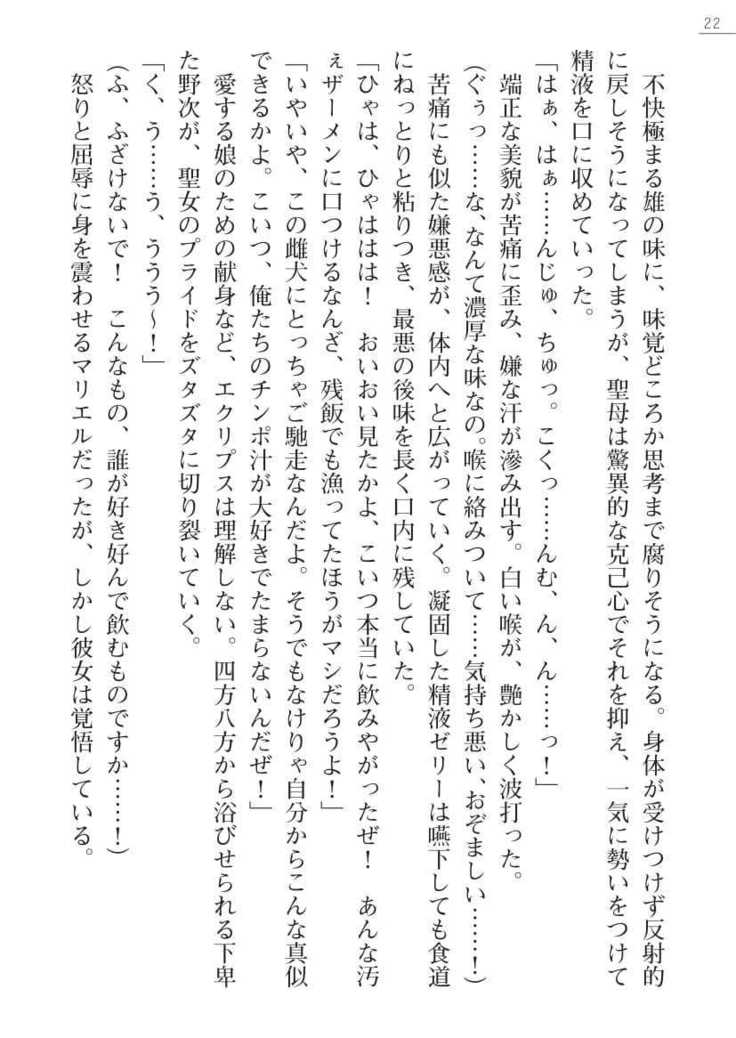 22
　不快極まる雄の味に、味覚どころか思考まで腐りそうになる。身体が受けつけず反射的
に戻しそうになってしまうが、聖母は驚異的な克己心でそれを抑え、一気に勢いをつけて
精液を口に収めていった。
「はぁ、はぁ……んじゅ、ちゅっ。こくっ……んむ、ん、ん……っ！」
　端正な美貌が苦痛に歪み、嫌な汗が滲み出す。白い喉が、艶かしく波打った。
（ぐぅっ……な、なんて濃厚な味なの。喉に絡みついて……気持ち悪い、おぞましい……！）
　苦痛にも似た嫌悪感が、体内へと広がっていく。凝固した精液ゼリーは嚥下しても食道
にねっとりと粘りつき、最悪の後味を長く口内に残していた。
「ひゃは、ひゃははは！　おいおい見たかよ、こいつ本当に飲みやがったぜ！　あんな汚
ぇザーメンに口つけるなんざ、残飯でも漁ってたほうがマシだろうよ！」
「いやいや、この雌犬にとっちゃご馳走なんだよ。そうでもなけりゃ自分からこんな真似
できるかよ。こいつ、俺たちのチンポ汁が大好きでたまらないんだぜ！」
　愛する娘のための献身など、エクリプスは理解しない。四方八方から浴びせられる下卑
た野次が、聖女のプライドをズタズタに切り裂いていく。
「く、う……う、ううう～！」
（ふ、ふざけないで！　こんなもの、誰が好き好んで飲むものですか……！）
　怒りと屈辱に身を震わせるマリエルだったが、しかし彼女は覚悟している。